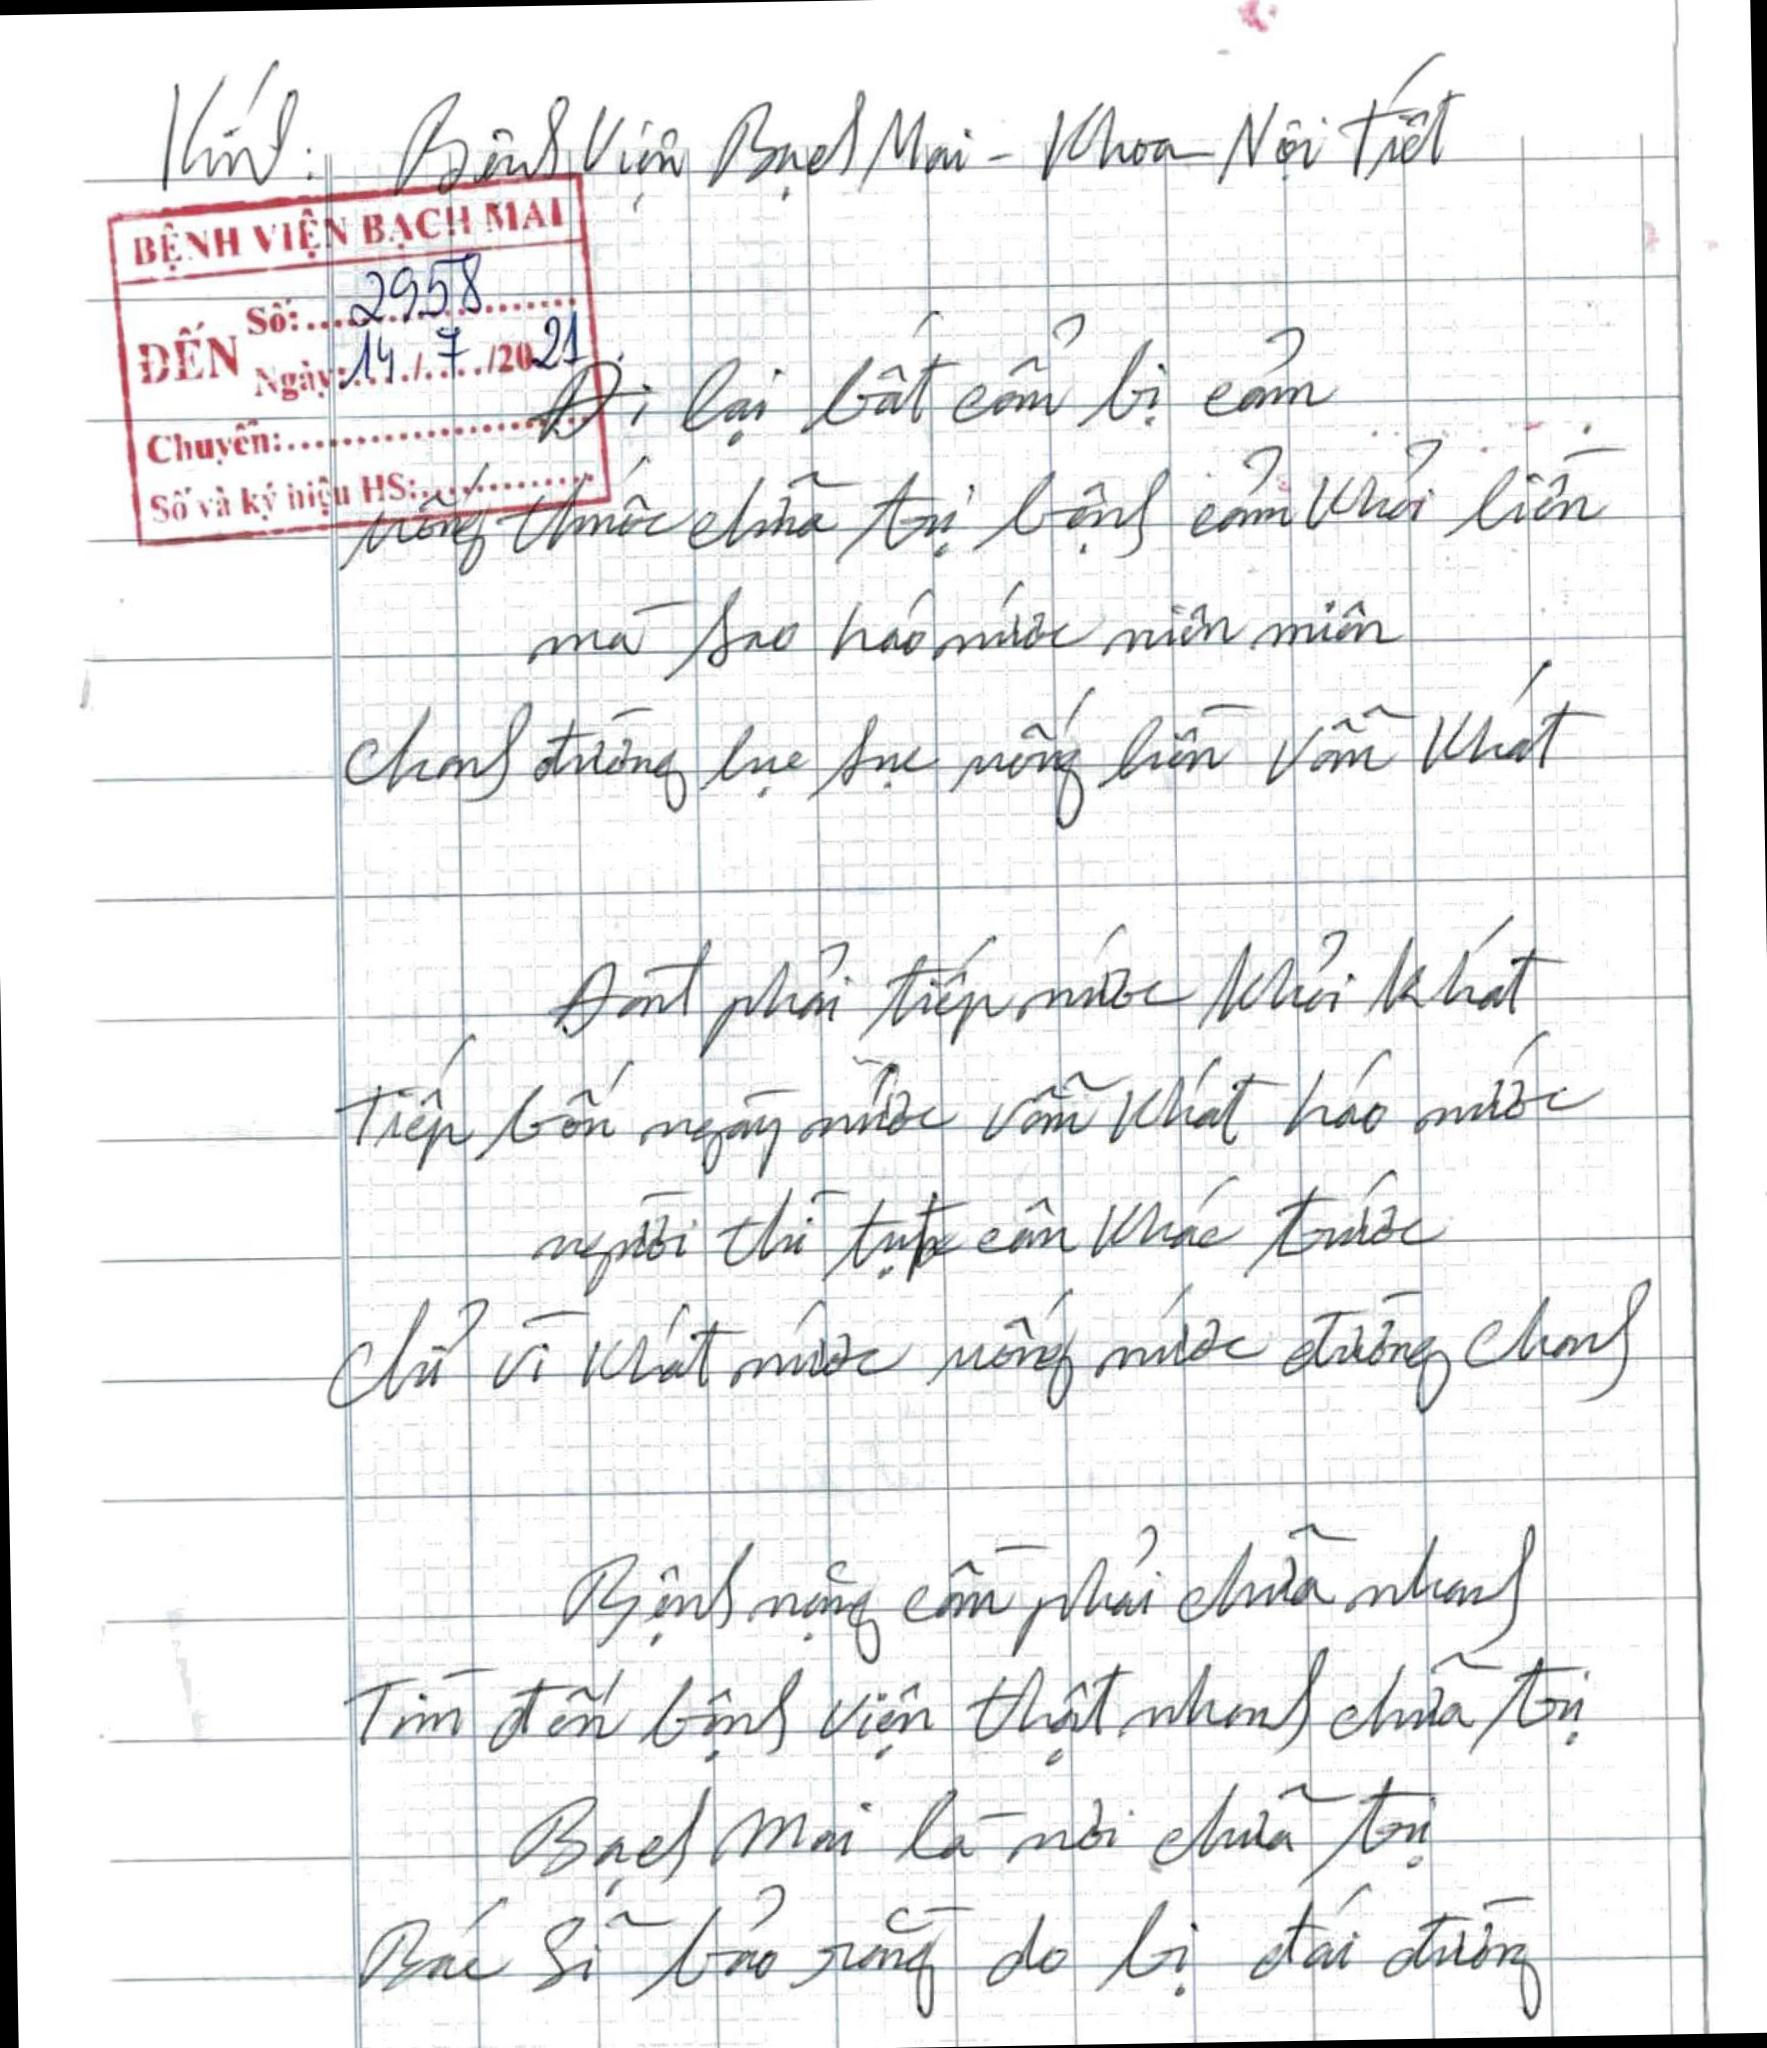 Kính: Bệnh Viện Bạch Mai - Khoa Nội Tiết
BỆNH VIỆN BẠCH MAI
ĐẾN
Số: 2958
Ngày: 14/7/2021
Chuyển:
Số và ký hiệu HS:
Đi lại bất cẩn bị cảm
uống thuốc chữa trị bệnh cảm khỏi liền
mà sao háo nước miên miên
chanh đường lục sục uống liền vẫn khát
Đành phải tiếp nước khỏi khát
Tiếp bốn ngày nước vẫn khát háo nước
người thì tụt cân khác trước
chỉ vì khát nước uống nước đường chanh
Bệnh nặng cần phải chữa nhanh
Tìm đến bệnh viện thật nhanh chữa trị
Bạch Mai là nơi chữa trị
Bác Sĩ bảo rằng do bị đái đường